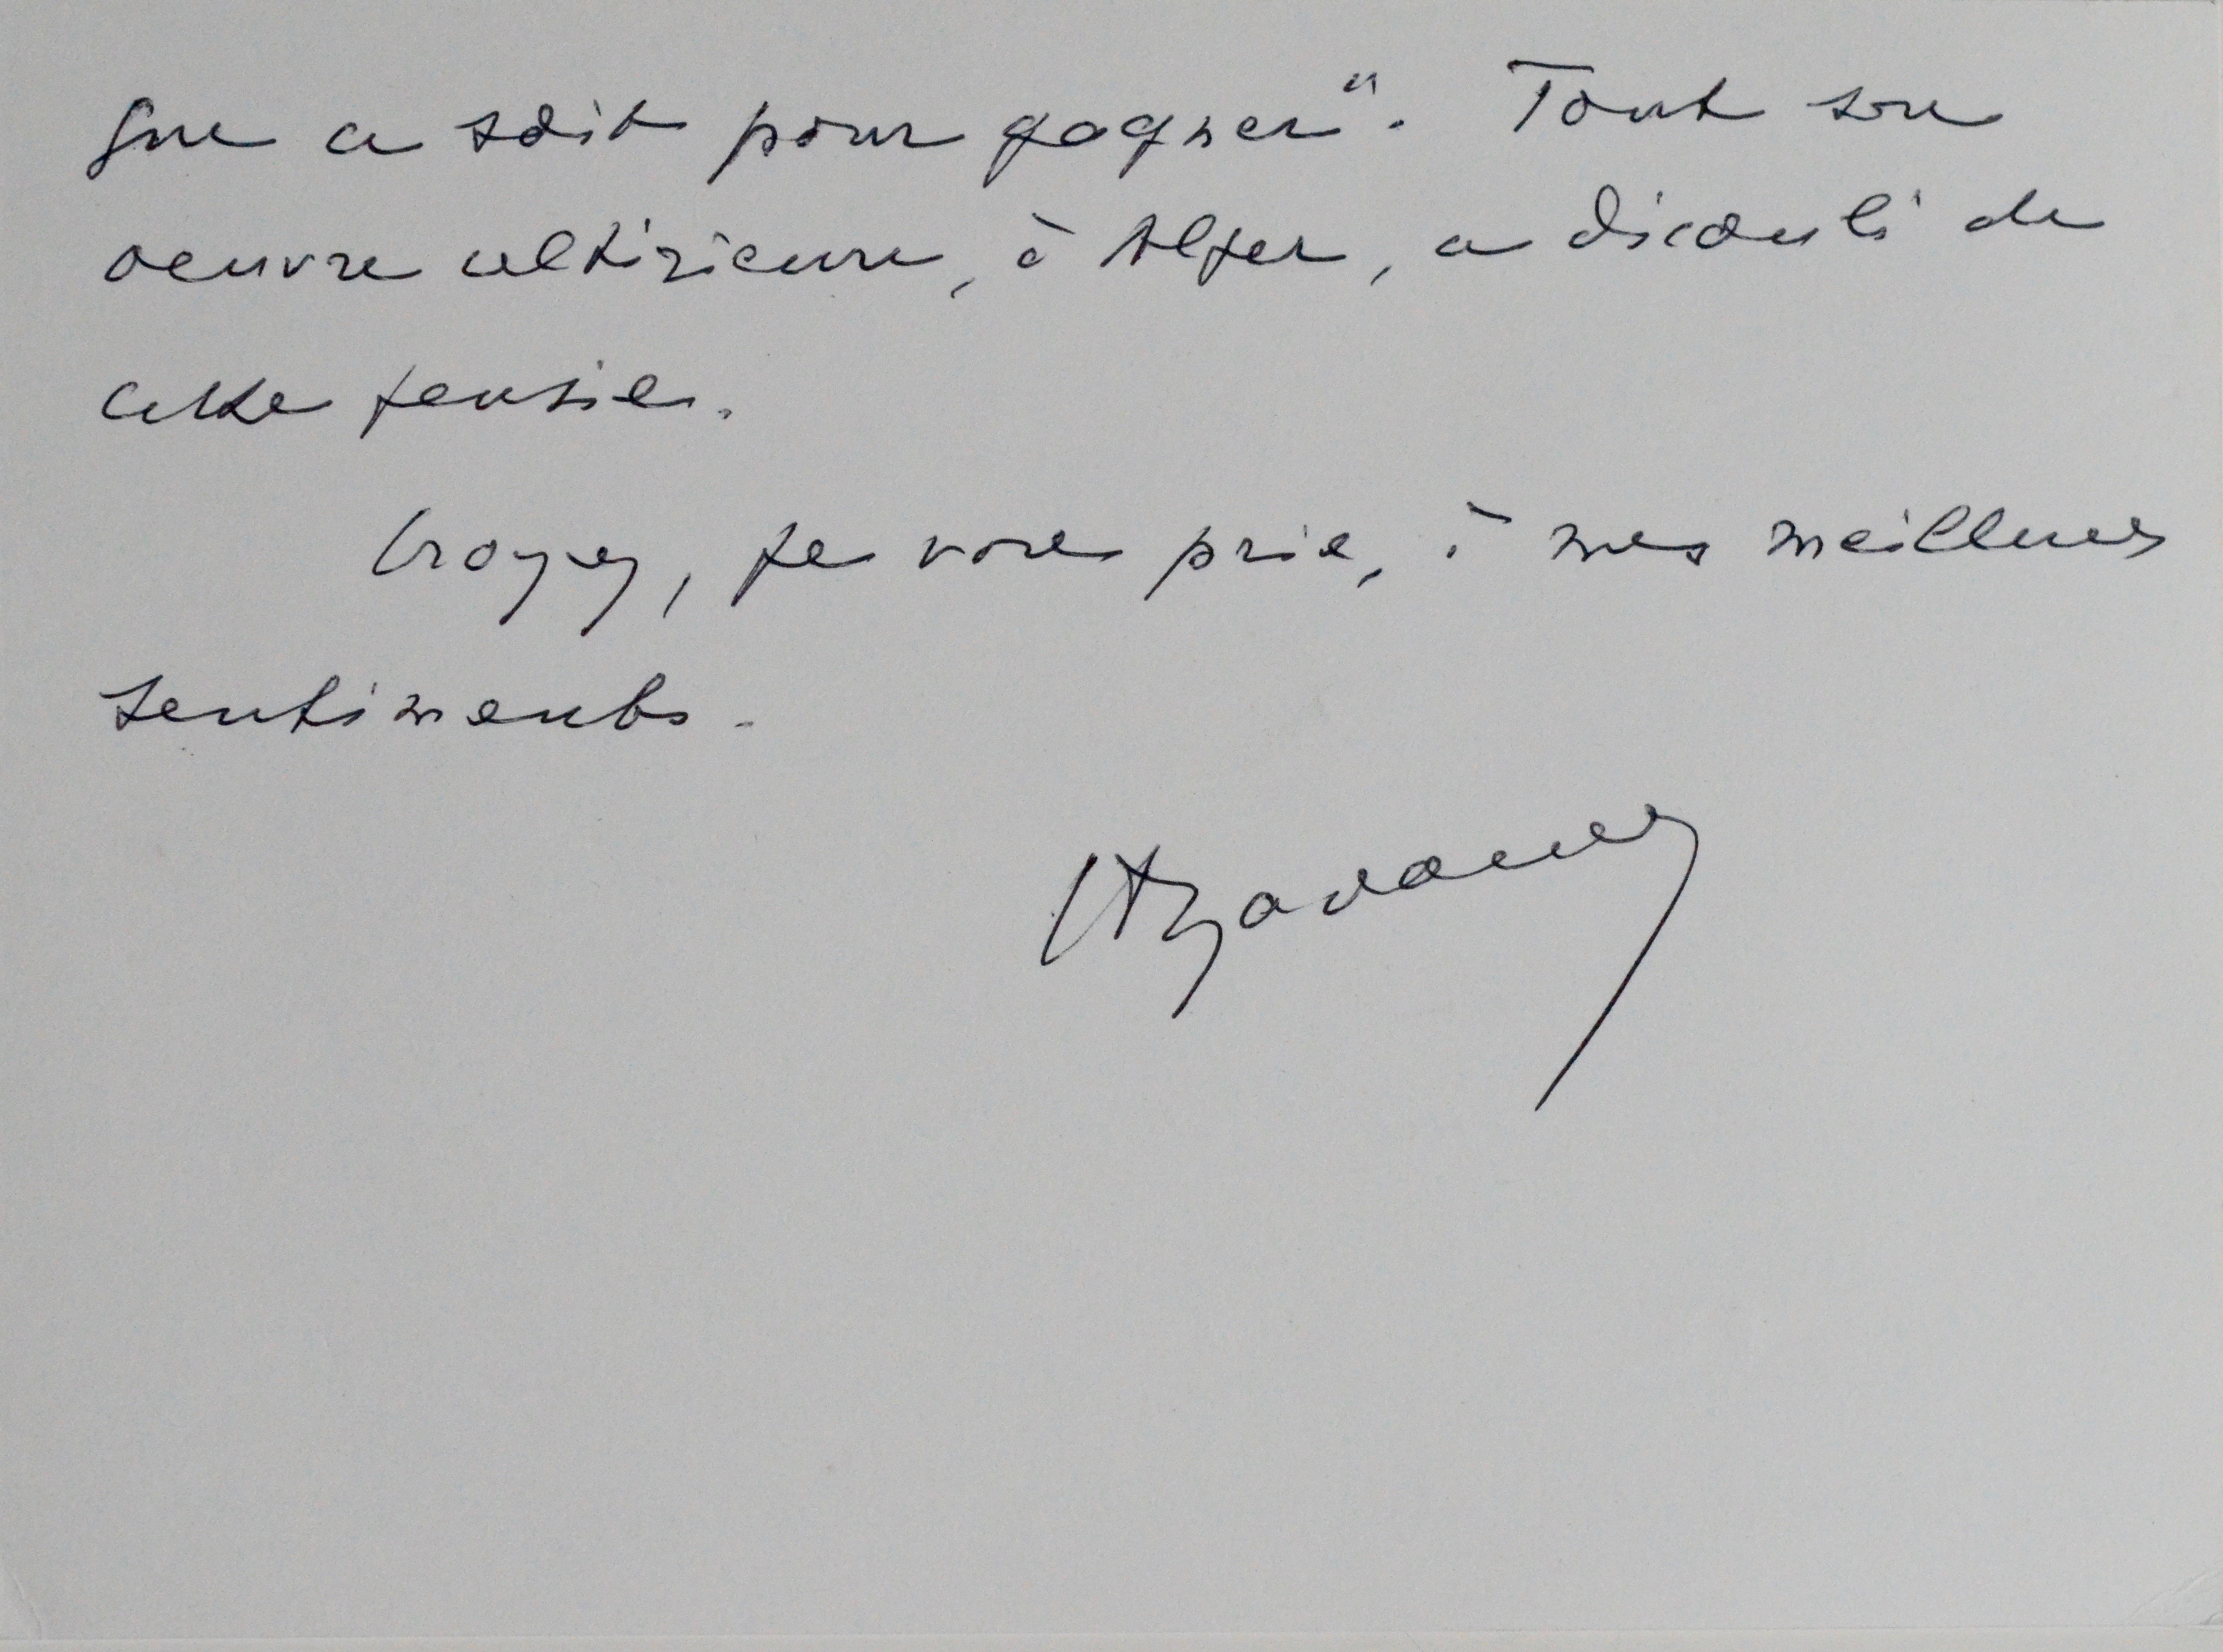 que ce soit pour gagner". Tout son
oeuvre ultérieure, à Alger, a découlé de
cette pensée.
Croyez, je vous prie, à mes meilleurs
sentiments.